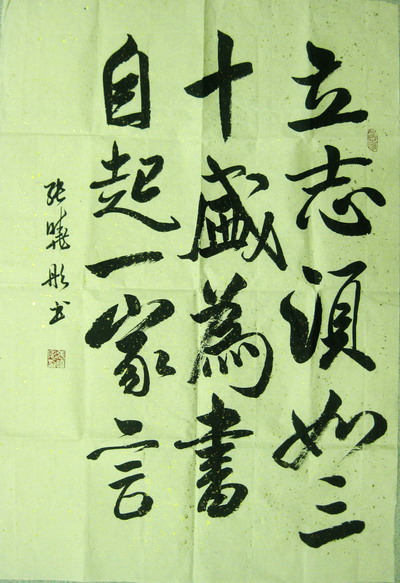 立志須如三
十盛為書
自起一家言
張曉彤书